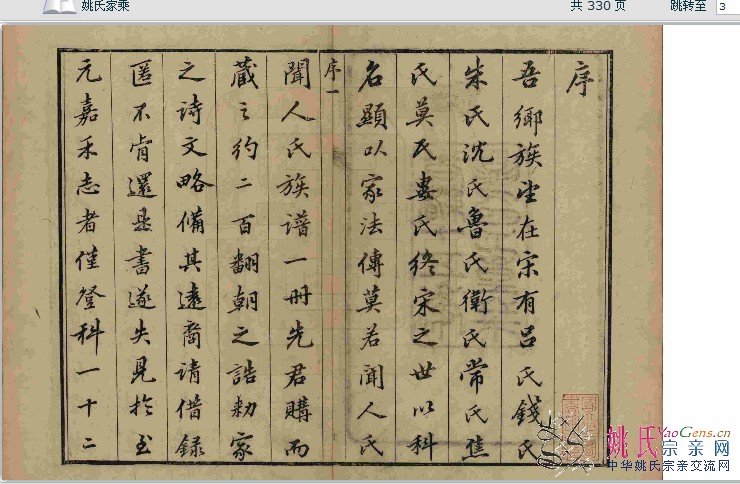 姚氏家乘 共 330 页 跳转至 3
序
吾鄉族望在宋有吕氏錢氏
朱氏沈氏魯氏衛氏常氏焦
氏莫氏婁氏終宋之世以科
名顯以家法傳莫若聞人氏
序一
聞人氏族譜一冊先君購而
藏之約二百翻朝之誥勅家
之詩文略備其遠裔請借録
匿不肯還是書遂失見於至
元嘉禾志者僅登科一十二
姚氏宗亲网
YaoGens.cn
中华姚氏宗亲交流网